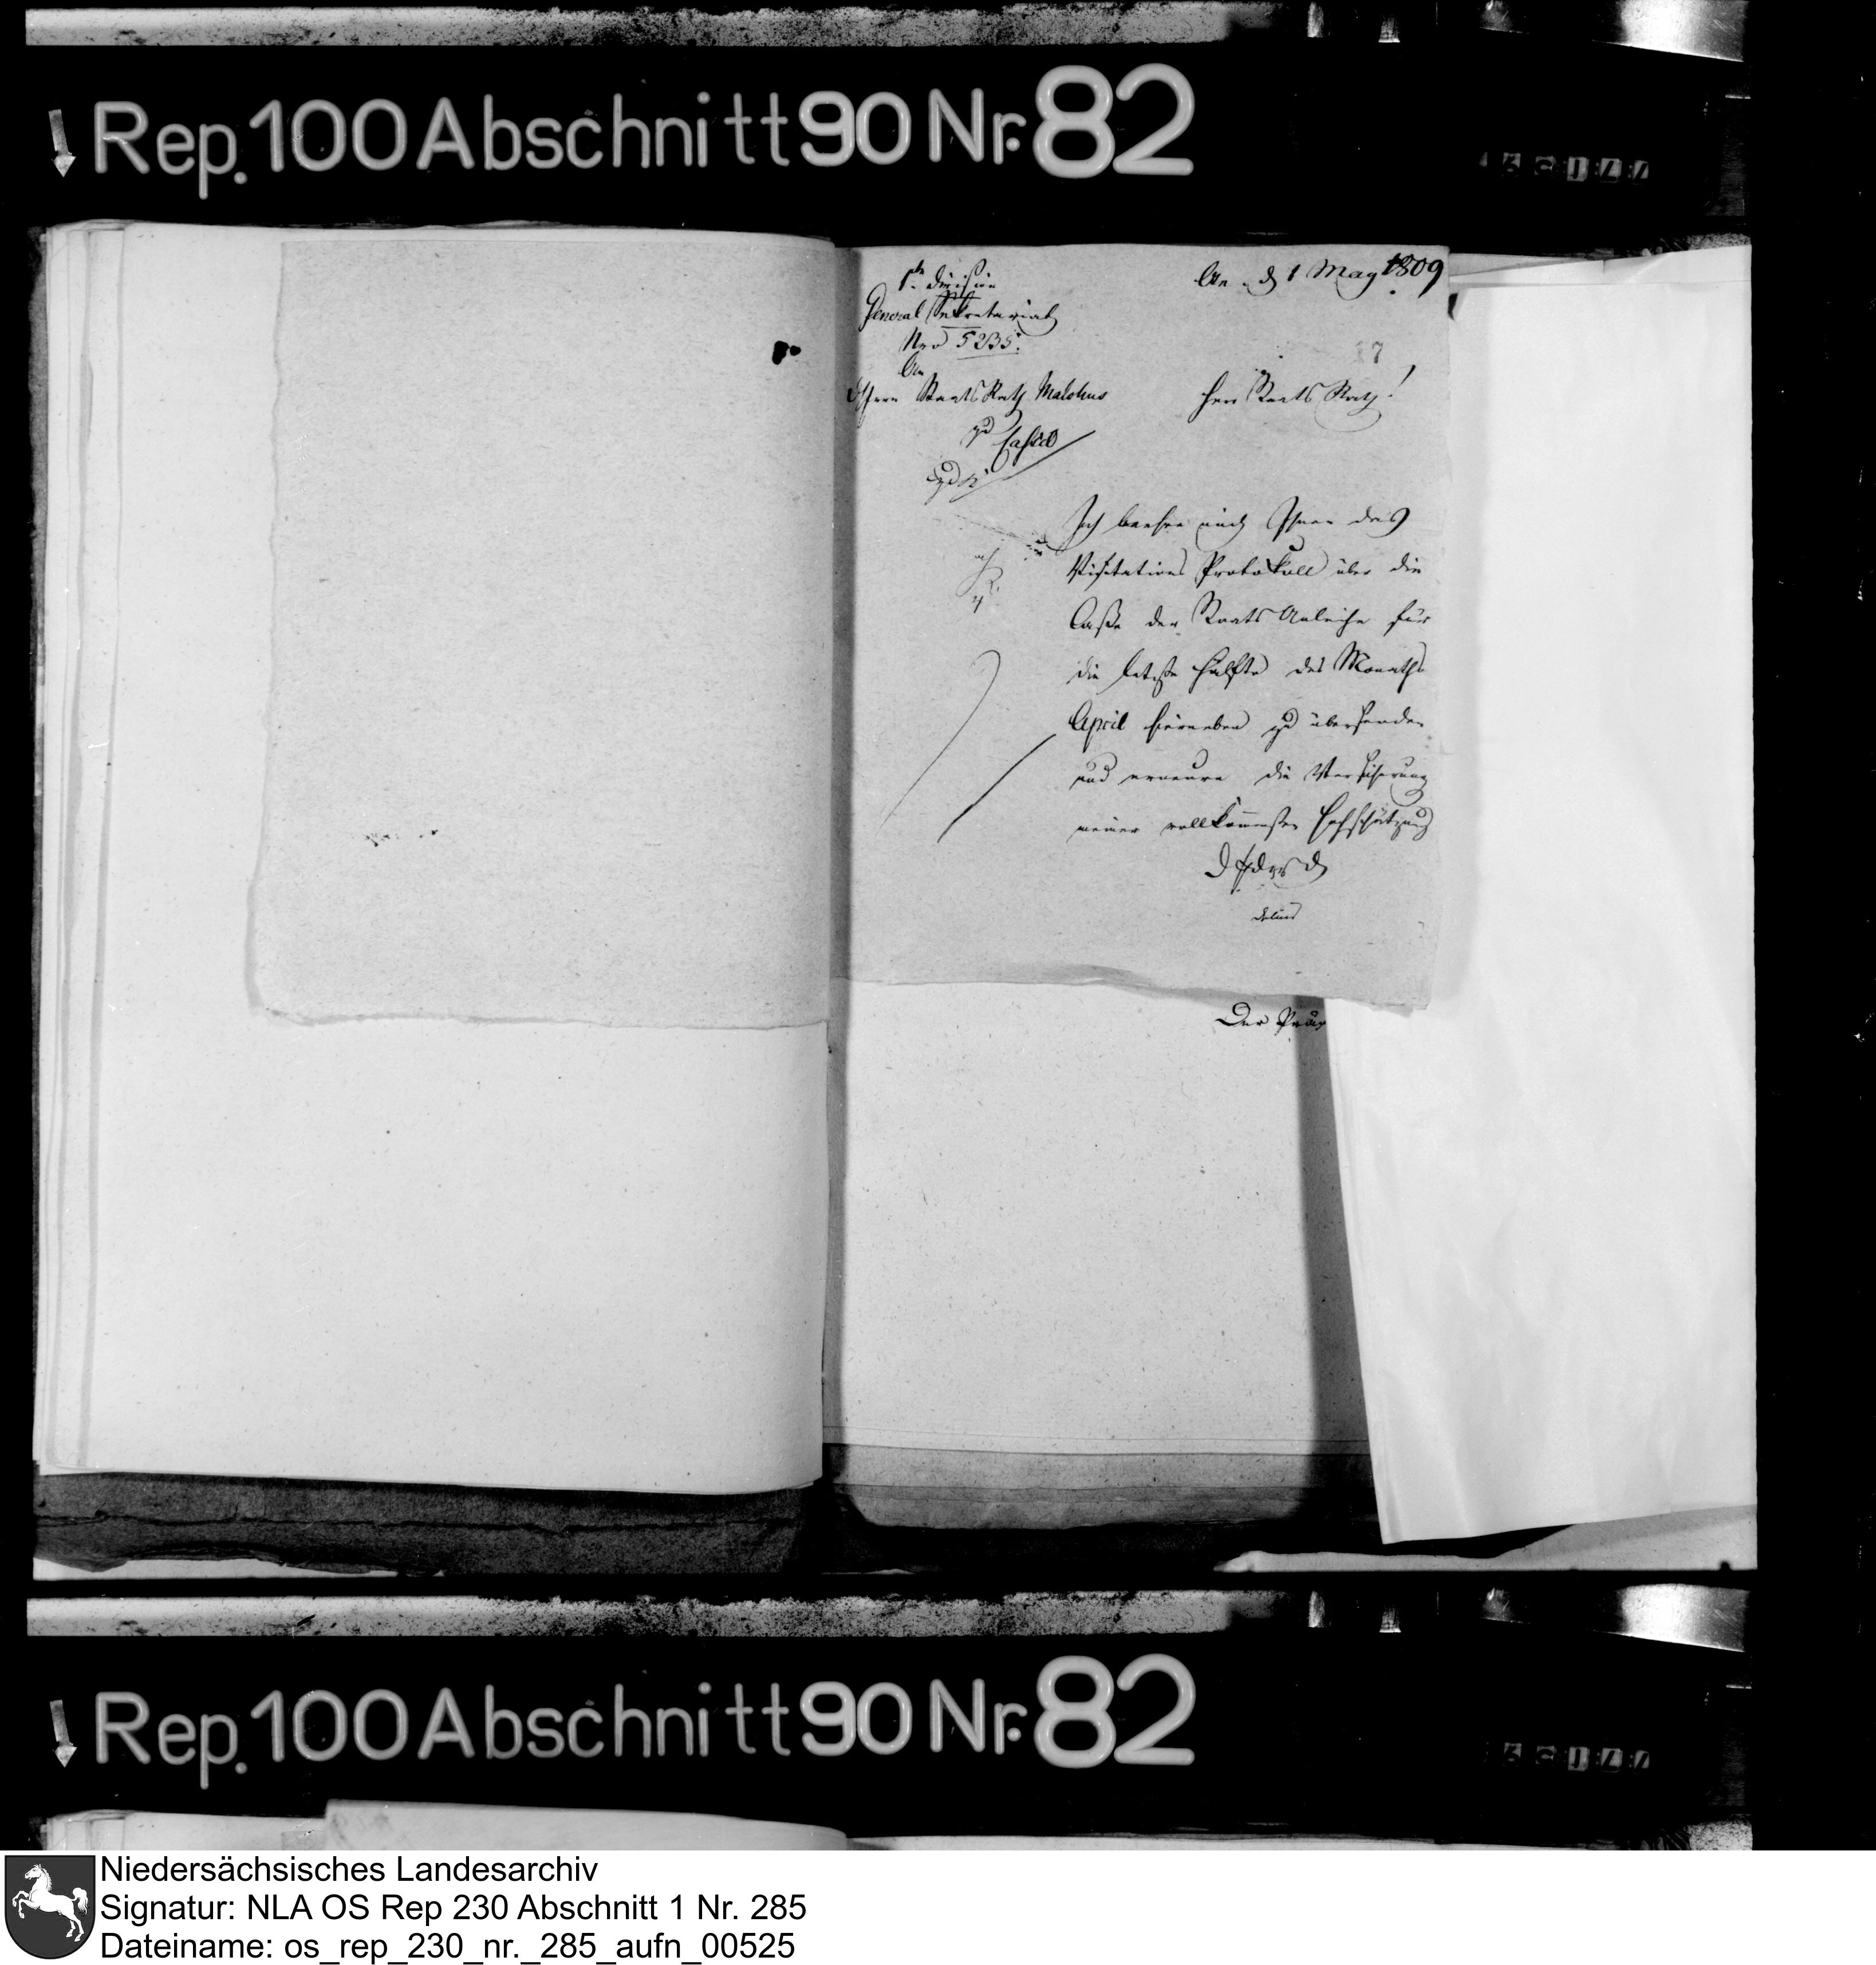 Rep. 100 Abschnitt 90 Nr. 82
1te Division
General Sekretariat
Nro 5235.
An
d Herrn Staats Rath Malchus
zu Cassel
An d 1 May 1809
17
Herr Staats Rath!
Ich beehre mich Ihnen das
Visitations Protokoll über die
Casse der Staats Anleihe für
die letzte Hälfte des Monaths
April hierneben zu übersenden
und erneure die Versicherung
meiner vollkommensten Hochschätzung
Delius
Der Präf
Rep. 100 Abschnitt 90 Nr. 82
Niedersächsisches Landesarchiv
Signatur: NLA OS Rep 230 Abschnitt 1 Nr. 285
Dateiname: os_rep_230_nr._285_aufn_00525